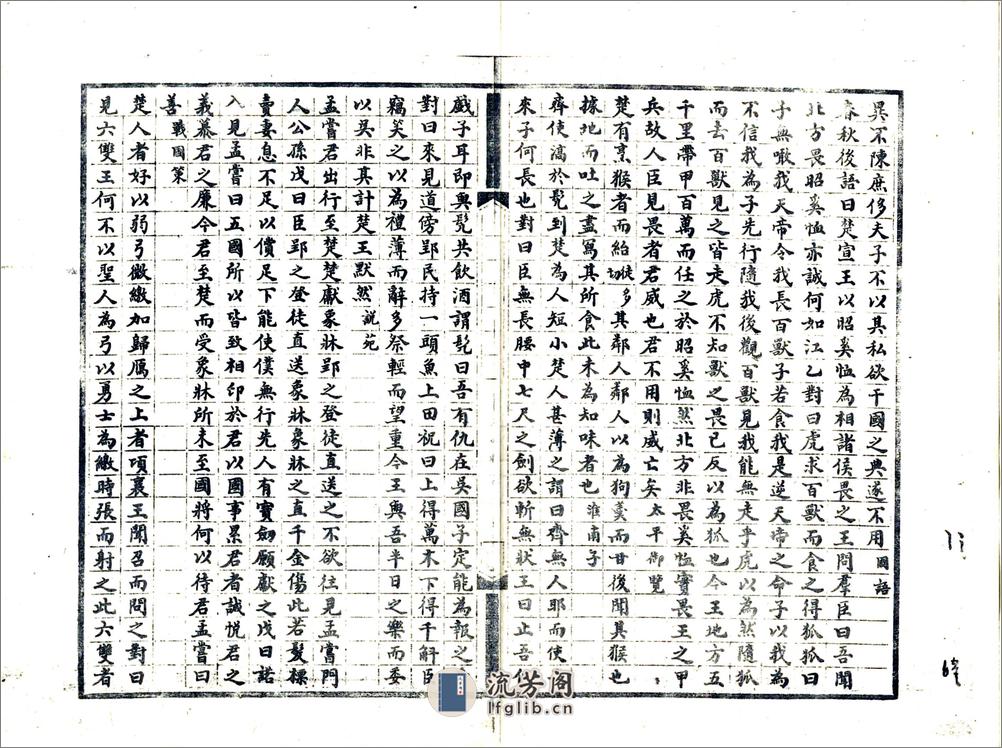 異不陳庶侈夫子不以其私欲干國之典遂不用國語
春秋後語曰楚宣王以昭奚恤為相諸侯畏之王問羣臣曰吾聞
北方畏昭奚恤亦誠何如江乙對曰虎求百獸而食之得狐狐曰
子無噉我天帝令我長百獸子若食我是逆天帝之命子以我為
不信我為子先行隨我後觀百獸見我能無走乎虎以為然隨狐
而去百獸見之皆走虎不知獸之畏己反以為狐也今王地方五
千里帶甲百萬而任之於昭奚恤然北方非畏奚恤實畏王之甲
兵故人臣見畏者君威也君不用則威亡矣太平御覽
楚有烹猴者而紿徒切多其鄰人鄰人以為狗羹而甘後聞其猴也
據地而吐之盡寫其所食此未為知味者也淮南子
齊使滴於髡到楚為人短小楚人甚薄之謂曰齊無人耶而使
來子何長也對曰臣無長腰中七尺之劍欲斬無狀王曰止吾
戲子耳即與髡共飲酒謂髡曰吾有仇在吳國子定能為報之
對曰來見道傍郢民持一頭魚上田祝曰上得萬木下得千斛臣
竊笑之以為禮薄而辭多祭輕而望重今王與吾半日之樂而委
以吳非其計楚王默然說苑
孟嘗君出行至楚楚獻象牀郢之登徒直送之不欲往見孟嘗門
人公孫戍曰臣郢之登徒直送象牀象牀之直千金傷此若髮標
賣妻息不足以償足下能使僕無行先人有寶劍願獻之戍曰諾
入見孟嘗曰五國所以皆致相印於君以國事累君者誠悅君之
義慕君之廉今君至楚而受象牀所未至國將何以待君孟嘗曰
善戰國策
楚人者好以弱弓微繳加歸雁之上者項襄王聞召而問之對曰
見六雙王何不以聖人為弓以勇士為繳時張而射之此六雙者
流芳阁
lfglib.cn